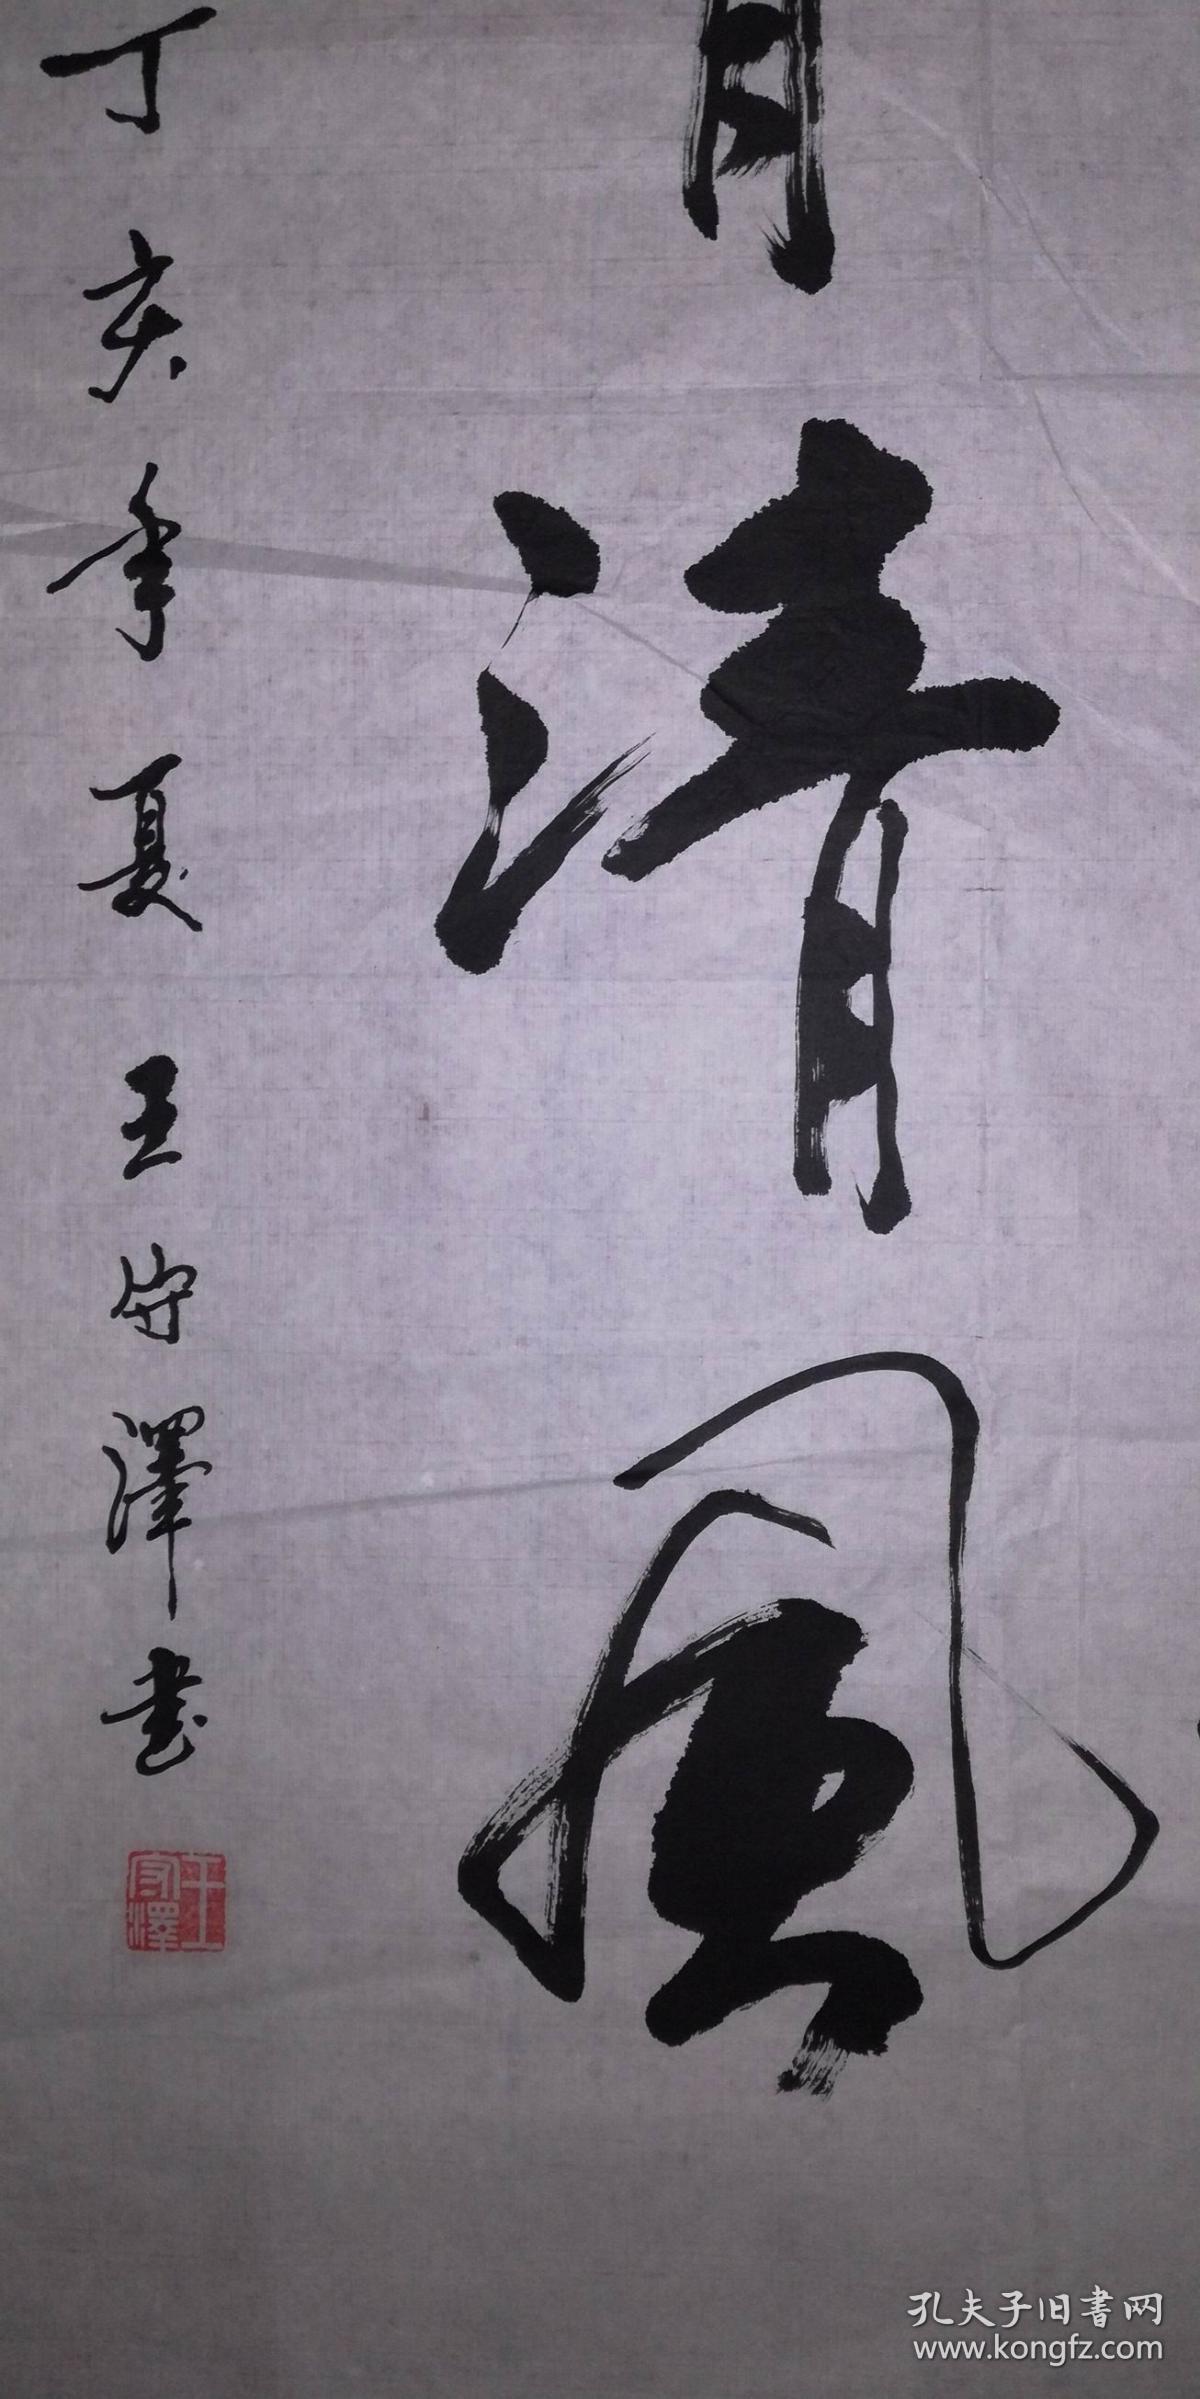 月清风
丁亥年夏王守泽書
王守澤
孔夫子旧書网
www.kongfz.com